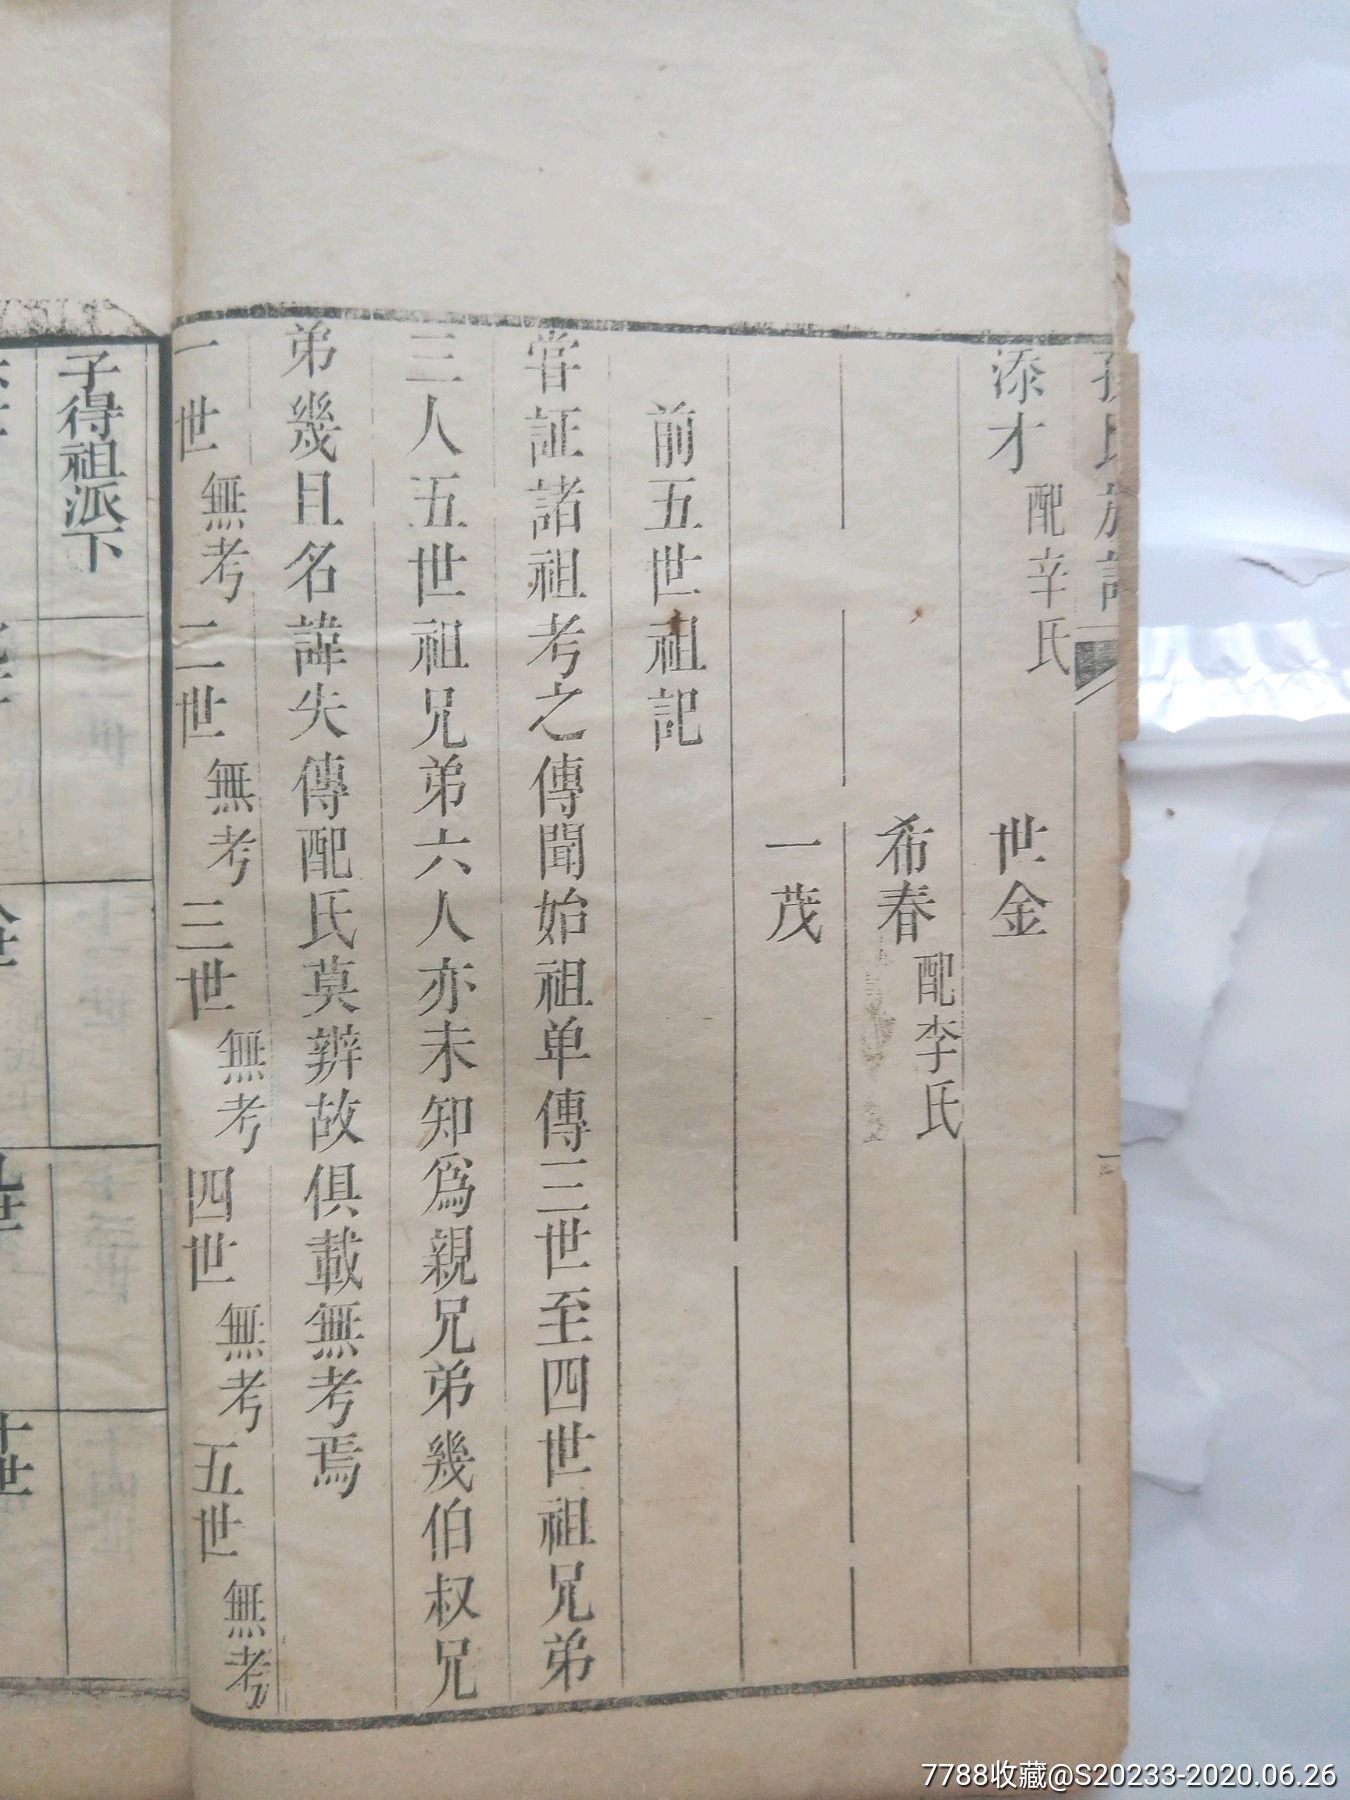 孫氏族譜
添才 配辛氏 世金
希春 配李氏
一茂
前五世祖記
嘗証諸祖考之傳聞始祖单傳三世至四世祖兄弟
三人五世祖兄弟六人亦未知爲親兄弟幾伯叔兄
弟幾且名諱失傳配氏莫辨故俱載無考焉
一世 無考 二世 無考 三世 無考 四世 無考 五世 無考
子得祖派下
九世
十世
7788收藏@S20233-2020.06.26